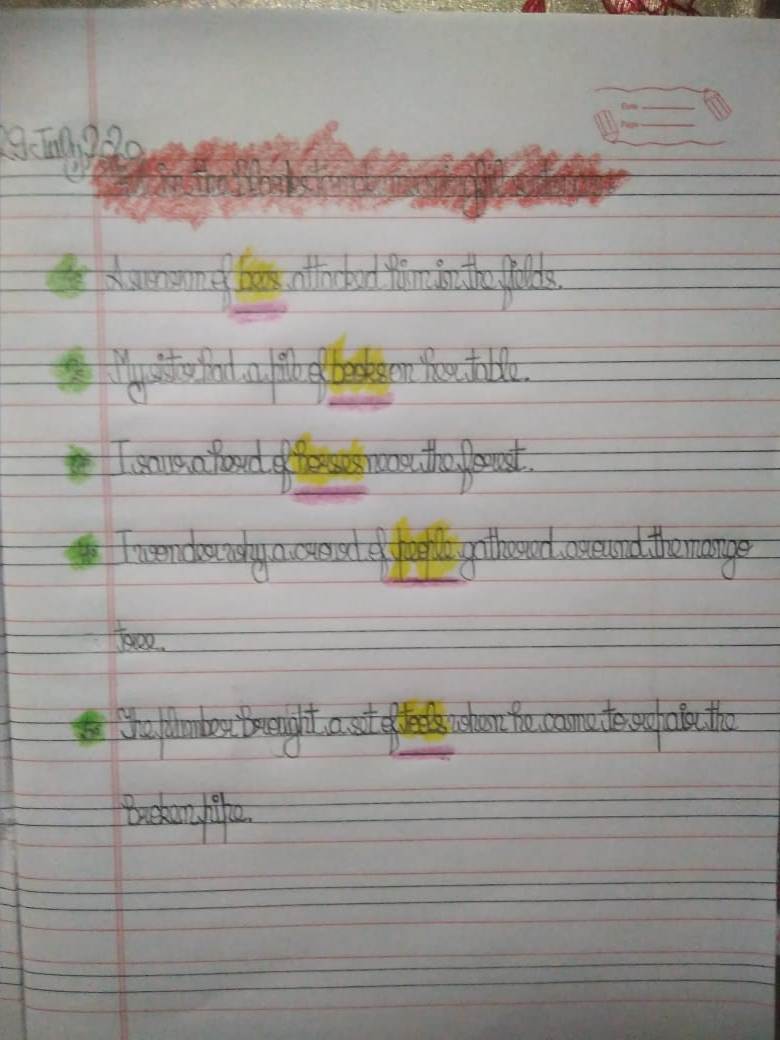 Date
Page
29 July 2020
Fill in the blanks to make meaningful sentences
1. A swarm of bees attacked him in the fields.
2. My sister had a pile of books on her table.
3. I saw a herd of horses near the forest.
4. I wonder why a crowd of people gathered around the mango
tree.
5. The plumber brought a set of tools when he came to repair the
Broken pipe.